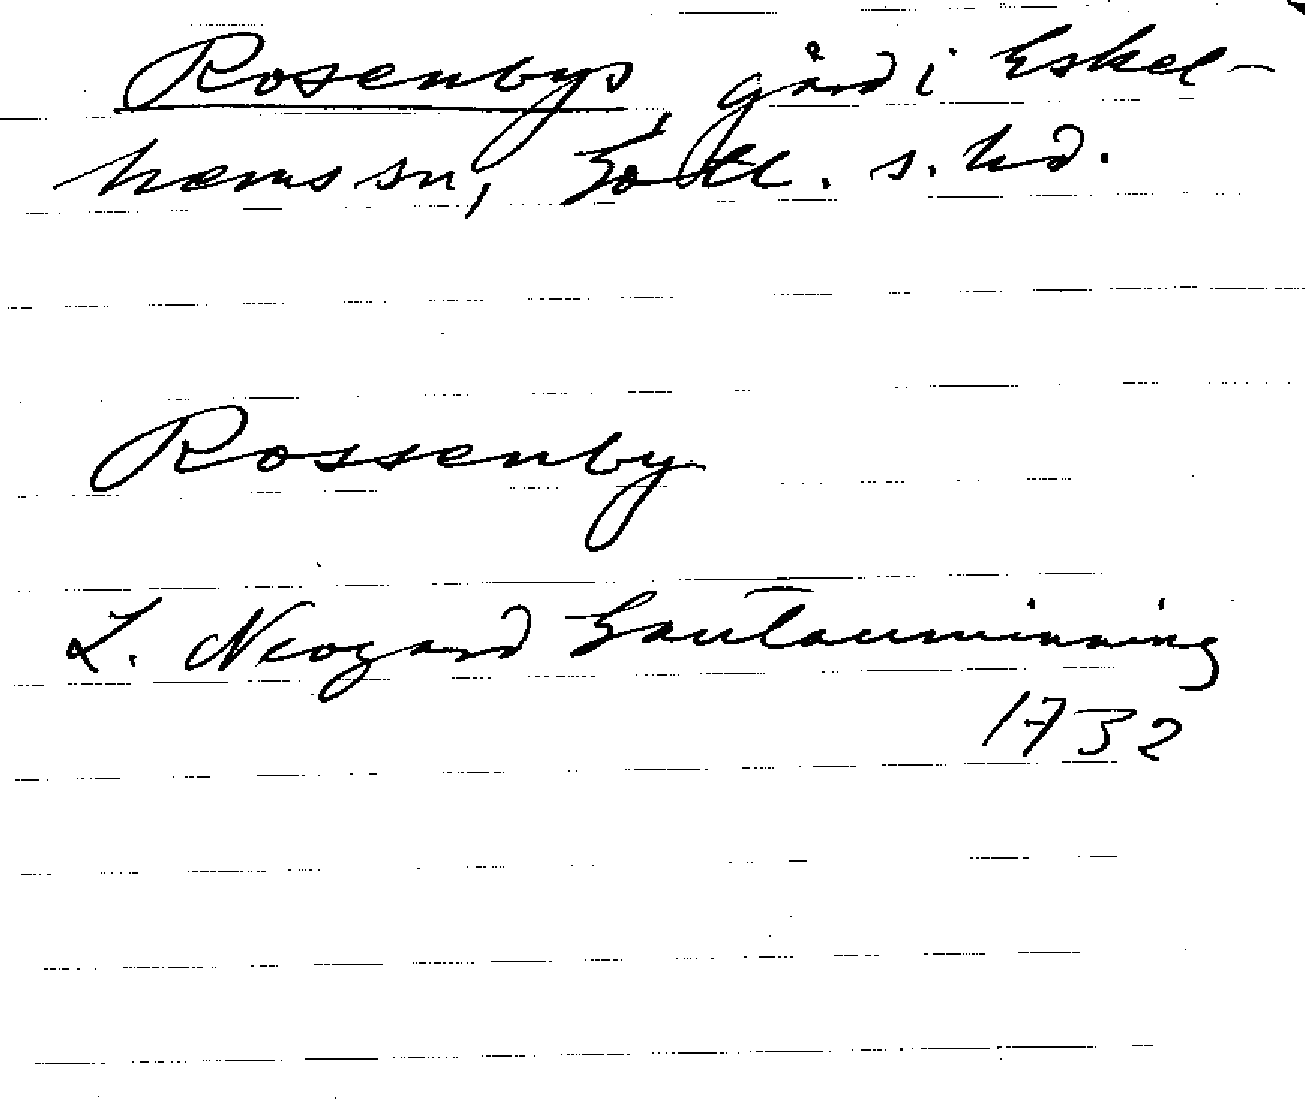 Rosenbys, gård i Eskel-
hems sn, Gotl. s. hd.
Rossenby
L. Neogard Gautauminning
1732